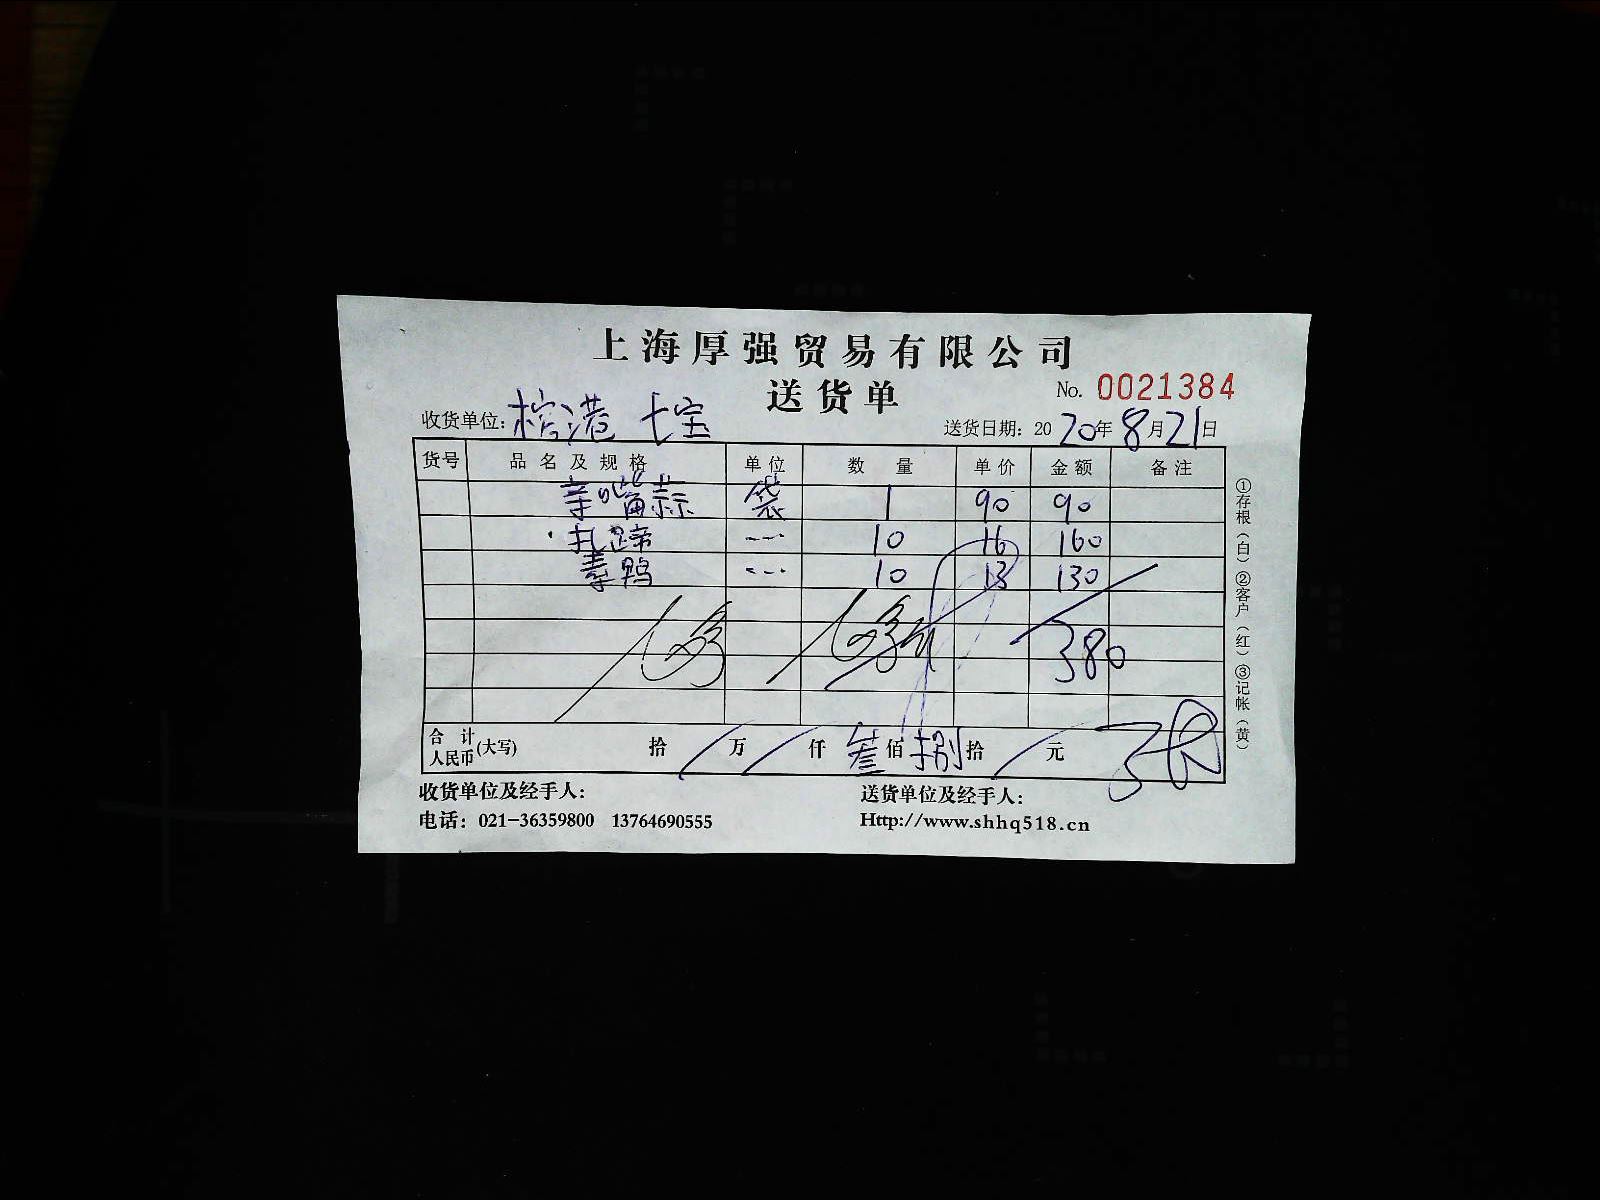 上海厚强贸易有限公司
送货单
No. 0021384
收货单位: 棕港 七宝
送货日期: 2020年8月21日
货号 品名及规格 单位 数量 单价 金额 备注
亲嘴蒜 袋 1 90 90
扎蹄 --- 10 16 160
素鸭 --- 10 13 130
380
合计人民币(大写) 拾 / 万 / 仟 叁 佰 捌 拾 / 元
收货单位及经手人:
送货单位及经手人:
电话: 021-36359800 13764690555
Http://www.shhq518.cn
①存根(白)②客户(红)③记帐(黄)